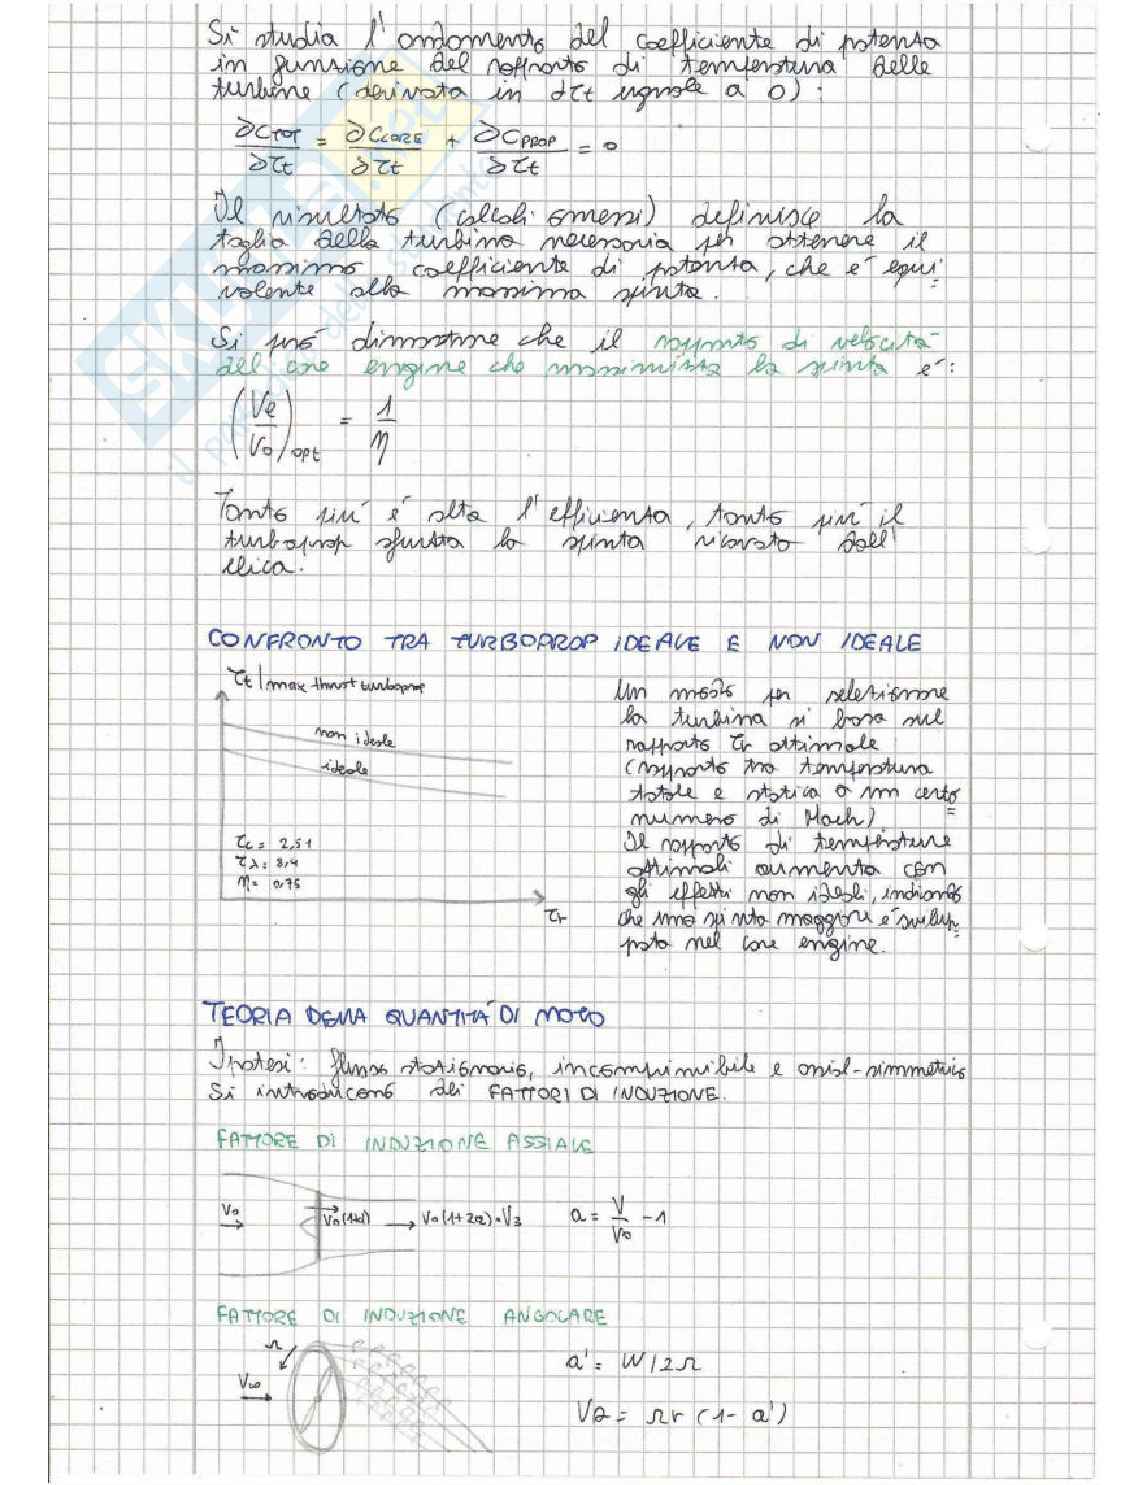 Si studia l'andamento del coefficiente di potenza
in funzione del rapporto di temperatura delle
turbine (derivata in dτt uguale a 0):
∂CTOT/∂τt = ∂CCORE/∂τt + ∂CPROP/∂τt = 0
Il risultato (calcoli omessi) definisce la
taglia della turbina necessaria per ottenere il
massimo coefficiente di potenza, che è equi-
valente alla massima spinta.
Si può dimostrare che il rapporto di velocità
del core engine che massimizza la spinta è:
(Ve/V0)opt = 1/η
Tanto più è alta l'efficienza, tanto più il
turboprop sfrutta la spinta ricavata dall'
elica.
CONFRONTO TRA TURBOPROP IDEALE E NON IDEALE
τt | max thrust turboprop
non ideale
ideale
τc = 2,51
τλ = 8,4
η = 0,75
τr
Un modo per selezionare
la turbina si basa sul
rapporto τr ottimale
(rapporto tra temperatura
totale e statica a un certo
numero di Mach).
Il rapporto di temperature
ottimali aumenta con
gli effetti non ideali, indicando
che una spinta maggiore è svilup-
pata nel core engine.
TEORIA DELLA QUANTITÀ DI MOTO
Ipotesi: flusso stazionario, incomprimibile e assial-simmetrico
Si introducono dei FATTORI DI INDUZIONE.
FATTORE DI INDUZIONE ASSIALE
V0 V0(1+a) V0(1+2a)=V3 a = V/V0 - 1
FATTORE DI INDUZIONE ANGOLARE
Ω
V∞
a' = W/2Ω
Vθ = Ωr (1 - a')